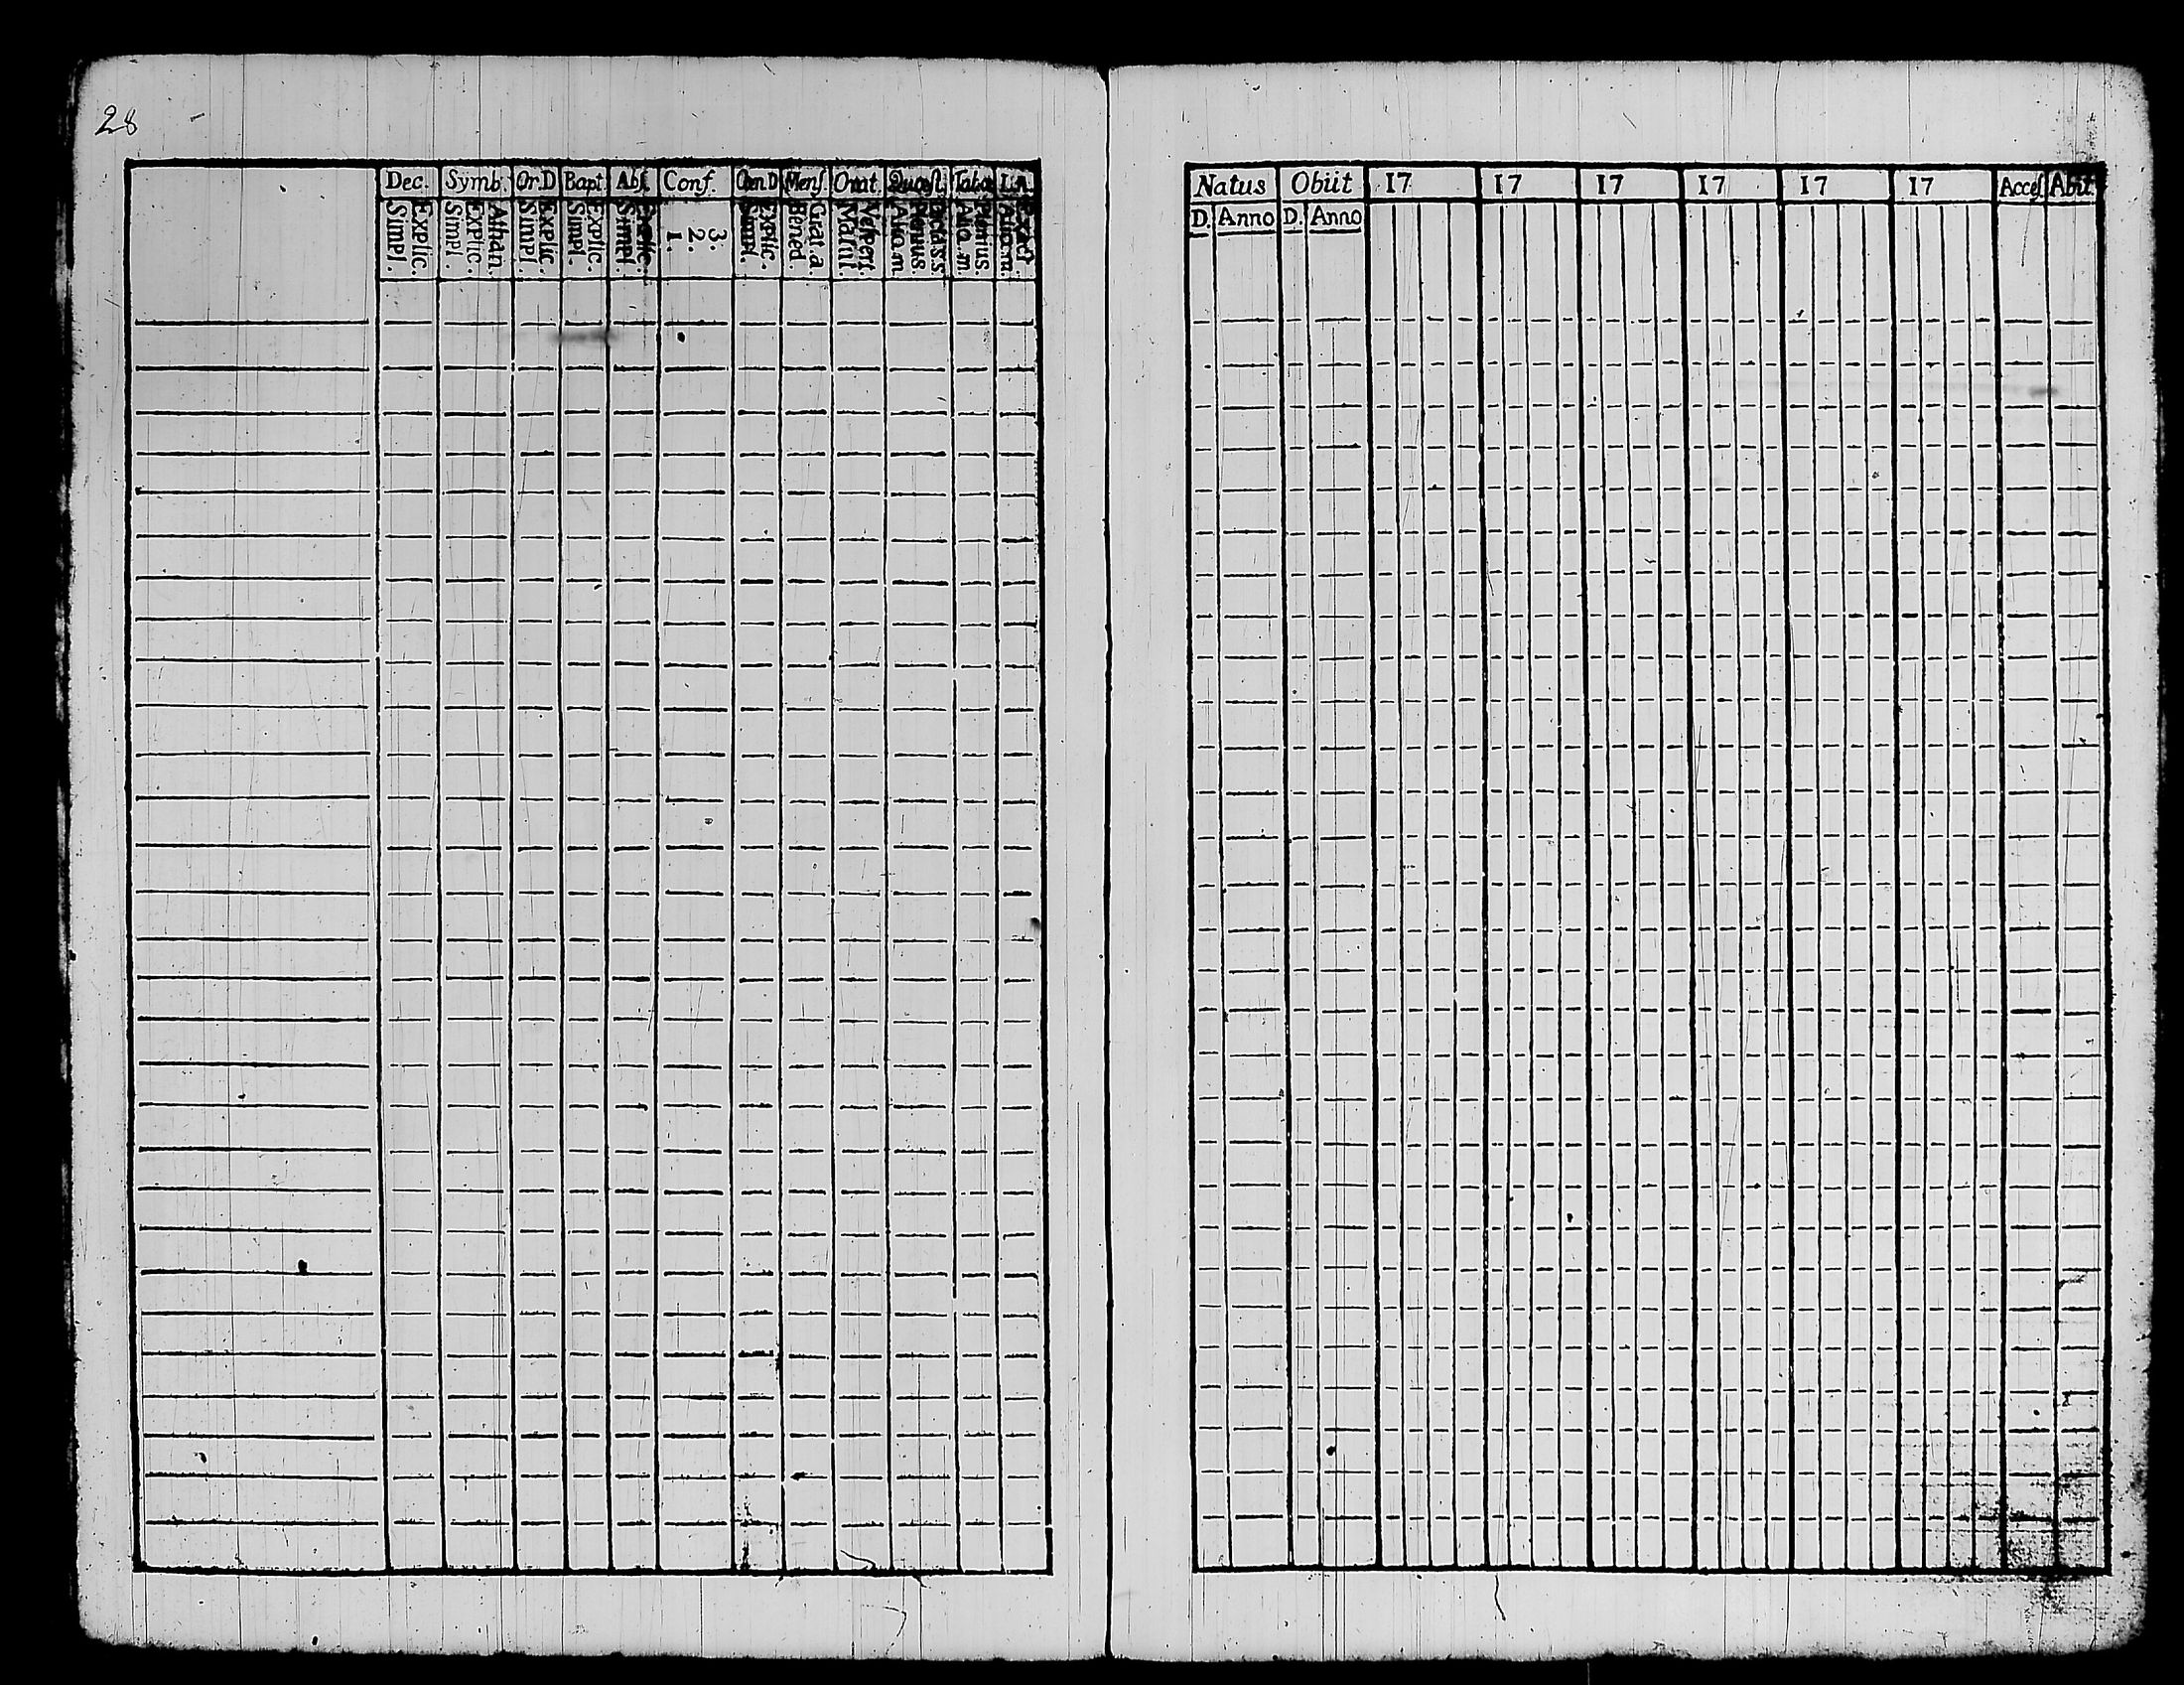 28
Dec. Symb. Or D Bapt. Abs. Conf. Cœn D Mens. Orat. Quæst. Tabœ L.A.
Explic. Simpl.
Athan. Explic. Simpl.
Explic. Simpl.
Explic. Simpl.
Explic. Simpl.
3. 2. 1.
Explic. Simpl.
Grat. a. Bened.
Vespert. Matut.
Dict. S.S. Plenius. Aliq. m.
Plenius. Aliq. m.
Exact. Aliq. m.
Natus Obiit 17 17 17 17 17 17 Acces. Abit.
D. Anno D. Anno